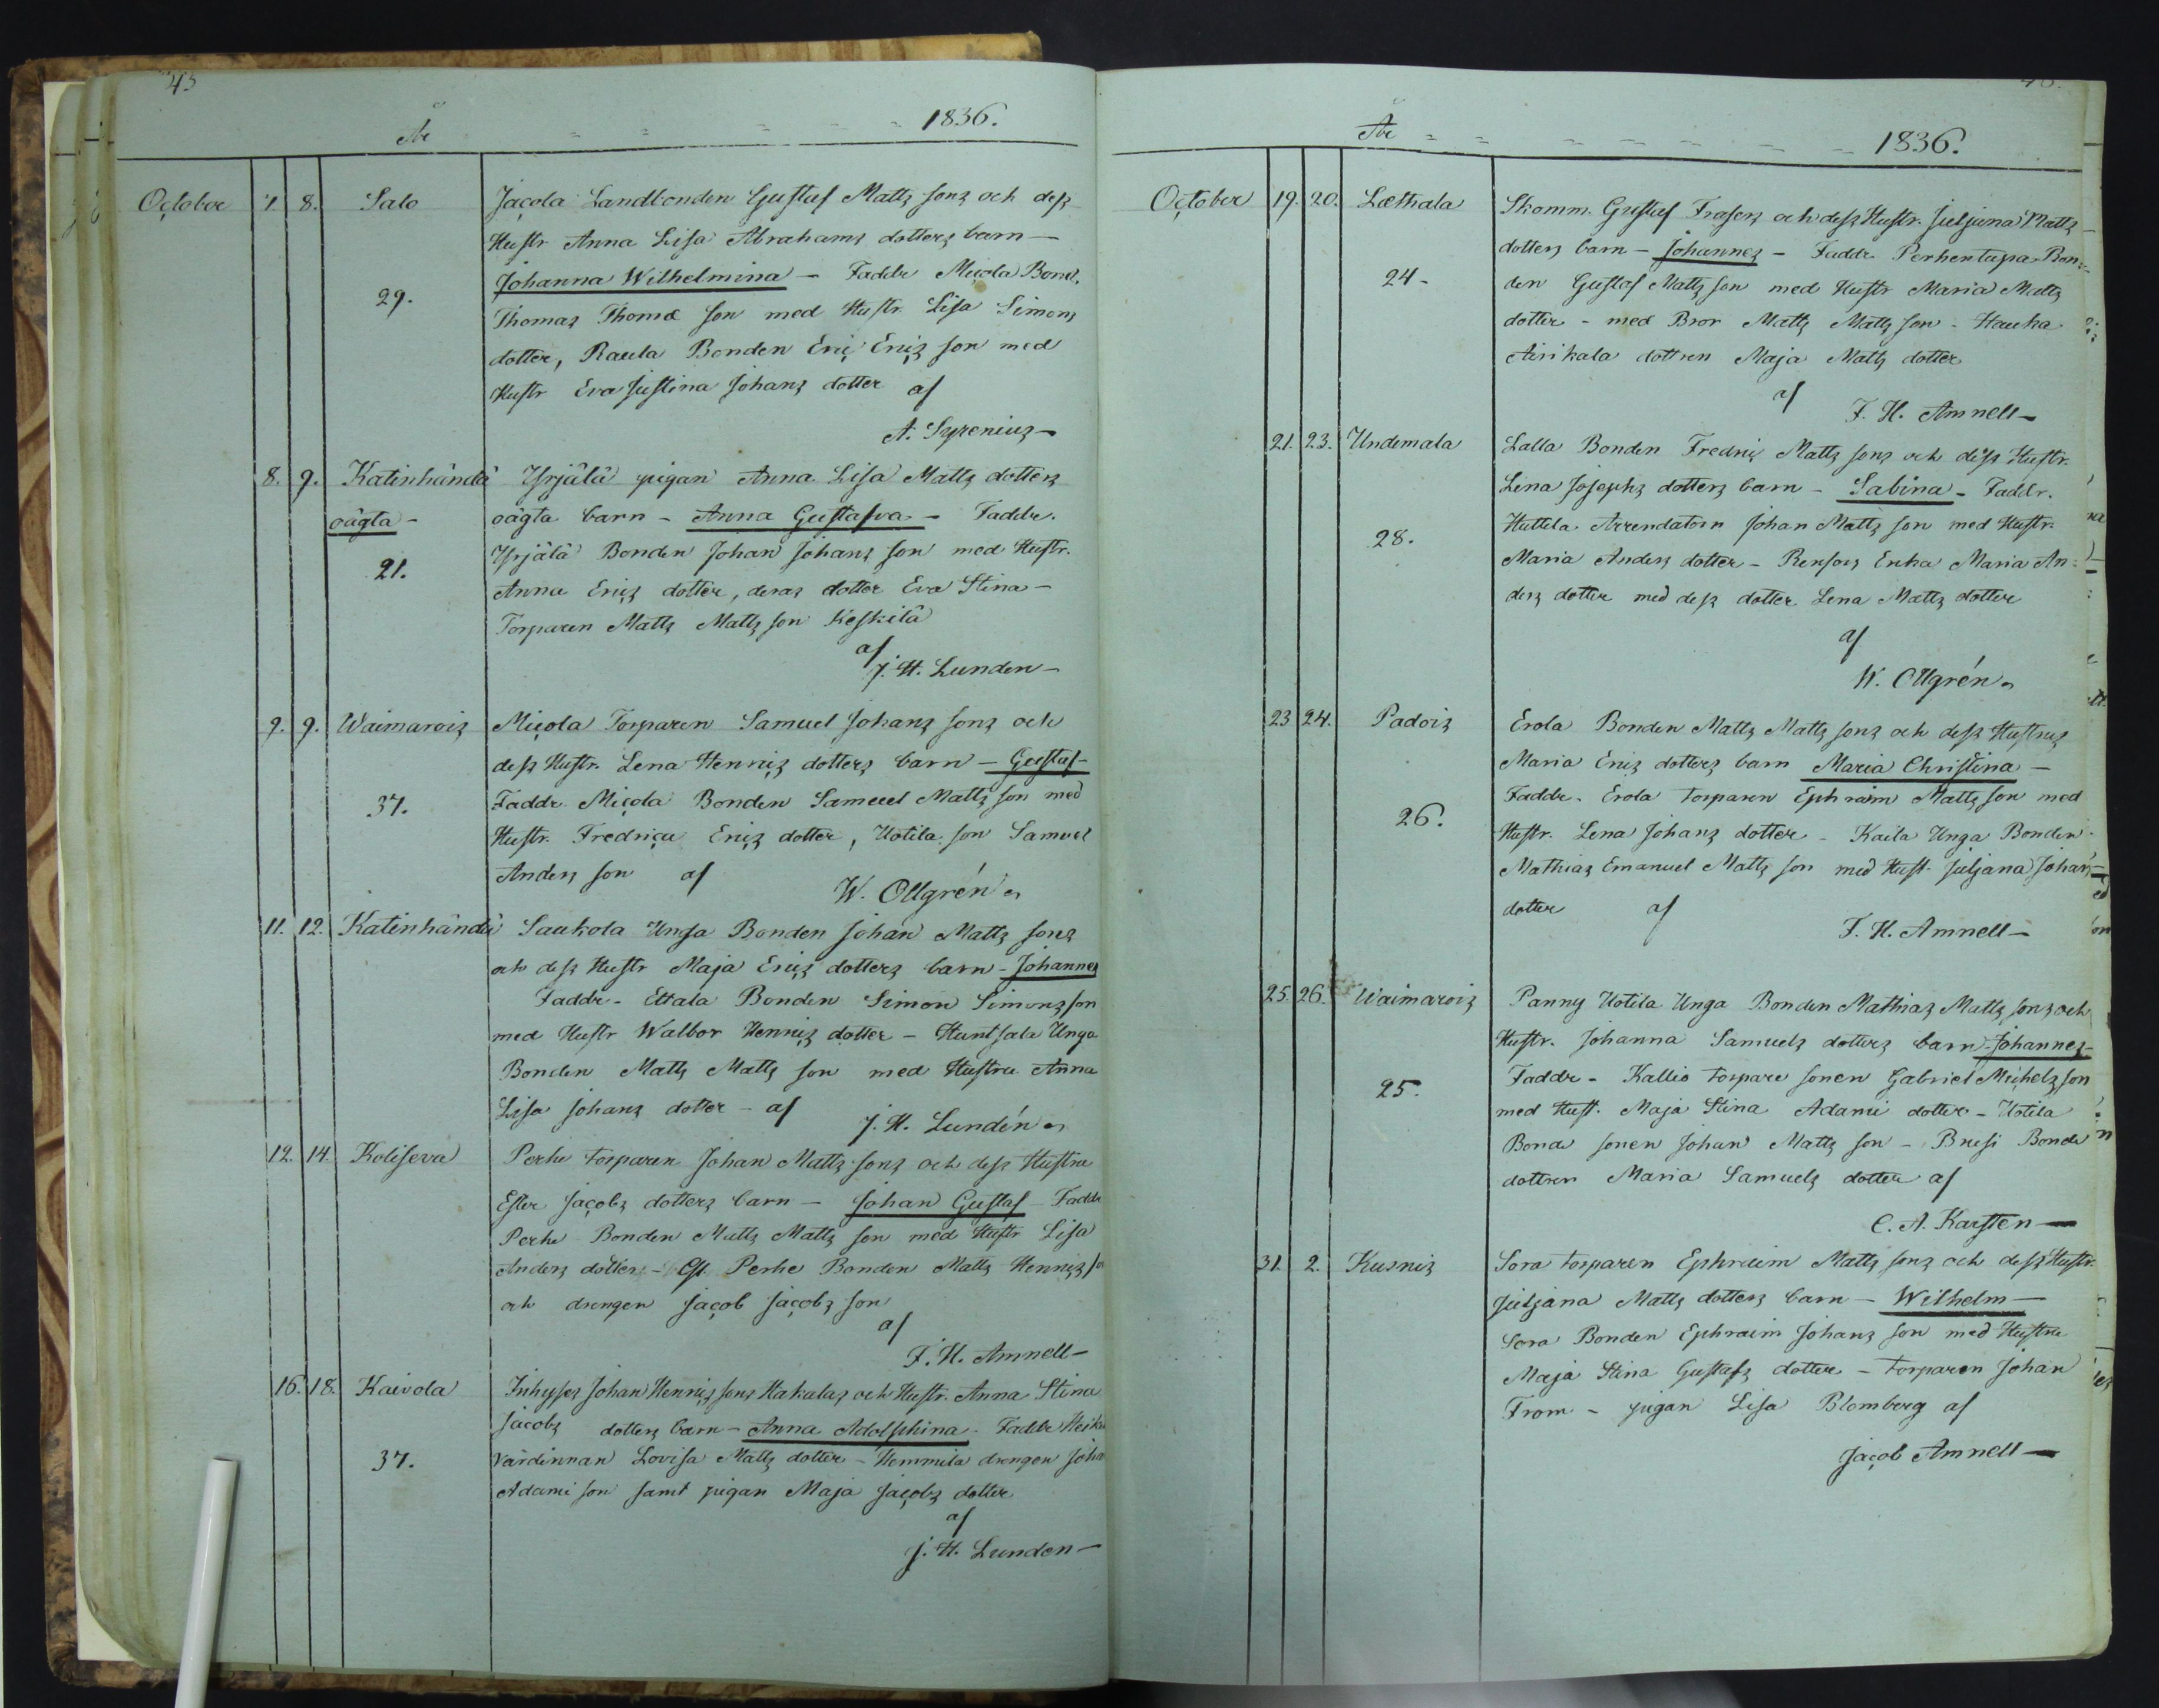 45
År - - - - - 1836.
October 7. 8. Salo Jacola Landbonden Gustaf Matts sons och dess
Hustr Anna Lisa Abrahams dotters barn —
Johanna Wilhelmina — Faddr Micola Bond.
29. Thomas Thomæ son med Hustr Lisa Simons
dotter, Raula Bonden Eric Erics son med
Hustr Eva Justina Johans dotter af
A. Syrenius —
8. 9. Katinhändä Yrjälä pigan Anna Lisa Matts dotters
oägta - oägta barn — Anna Gustafva — Faddr.
21. Yrjälä Bonden Johan Johans son med Hustr.
Anna Erics dotter, deras dotter Eva Stina —
Torparen Matts Matts son Keskilä
af
J. H. Lunden —
9. 9. Waimarois Micola Torparen Samuel Johans sons och
dess Hustr. Lena Henrics dotters barn — Gustaf —
37. Faddr. Micola Bonden Samuel Matts son med
Hustr. Fredrica Erics dotter, Uotila son Samuel
Anders son af
W. Ollgrén
11. 12. Katinhändä Saukola Unga Bonden Johan Matts sons
och dess Hustr Maja Erics dotters barn — Johannes
Faddr - Ettala Bonden Simon Simons son
med Hustr Walbor Henrics dotter — Huntsala Unga
Bonden Matts Matts son med Hustru Anna
Lisa Johans dotter — af
J. H. Lundén
12. 14. Koliseva Perhe torparen Johan Matts sons och dess Hustru
Ester Jacobs dotters barn — Johan Gustaf Faddr
Perhe Bonden Matts Matts son med Hustr Lisa
Anders dotter — Perhe Bonden Matts Henrics
och drengen Jacob Jacobs son
af
F. H. Amnell —
16. 18. Kaivola Inhyses Johan Henrics sons Hakalas och Hustr. Anna Stina
Jacobs dotters barn — Anna Adolphina. Faddr
37. värdinnan Lovisa Matts dotter — Hemmilä drengen Joha
Adami son samt pigan Maja Jacobs dotter
af
J. H. Lunden —
År - - - - - - 1836.
October 19. 20. Læthala Skomm. Gustaf Frasers och dess Hustr. Juljana Matts
dotters barn — Johannes — Faddr. Perhentupa Bon-
24 - den Gustaf Matts son med Hustr Maria Matts
dotter - med Bror Matts Matts son - Hauka
Airikala dottren Maja Matts dotter
af
F. H. Amnell —
21. 23. Undemala Lalla Bonden Fredric Matts sons och dess Hustr.
Lena Josephs dotters barn — Sabina — Faddr.
28. Huttila Arrendatorn Johan Matts son med Hustr.
Maria Anders dotter — Rensors Enka Maria An:
ders dotter med dess dotter Lena Matts dotter
af
W. Ollgrén
23 24. Padois Erola Bonden Matts Matts sons och dess Hustrus
Maria Erics dotters barn Maria Christina —
26. Faddr. Erola torparen Ephraim Matts son med
Hustr. Lena Johans dotter — Kaila Unga Bonden
Mathias Emanuel Matts son med Hust. Juljana Johans
dotter af
F. H. Amnell —
25. 26. Waimarois Panny Uotila Unga Bonden Mathias Matts sons och
Hustr. Johanna Samuels dotters barn Johannes —
25. Faddr - Kallio torpare sonen Gabriel Michels son
med Hust. Maja Stina Adami dotter — Uotila
Bonde sonen Johan Matts son — Brusi Bonde
dottren Maria Samuels dotter af
C. A. Karsten —
31. 2. Kusnis Sora torparen Ephraim Matts sons och dess Hustr.
Juljana Matts dotters barn — Wilhelm —
Sora Bonden Ephraim Johans son med Hustru
Maja Stina Gustafs dotter — torparen Johan
From — pigan Lisa Blomberg af
Jacob Amnell —